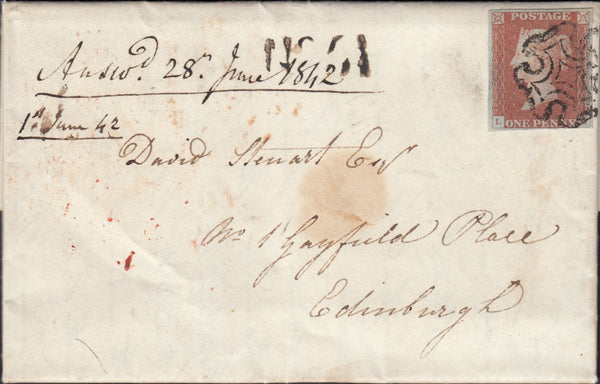 Answd. 28th June 1842
1st June 42
David Steuart Esqr
No 1 Gayfield Place
Edinburgh
POSTAGE
L
ONE PENNY